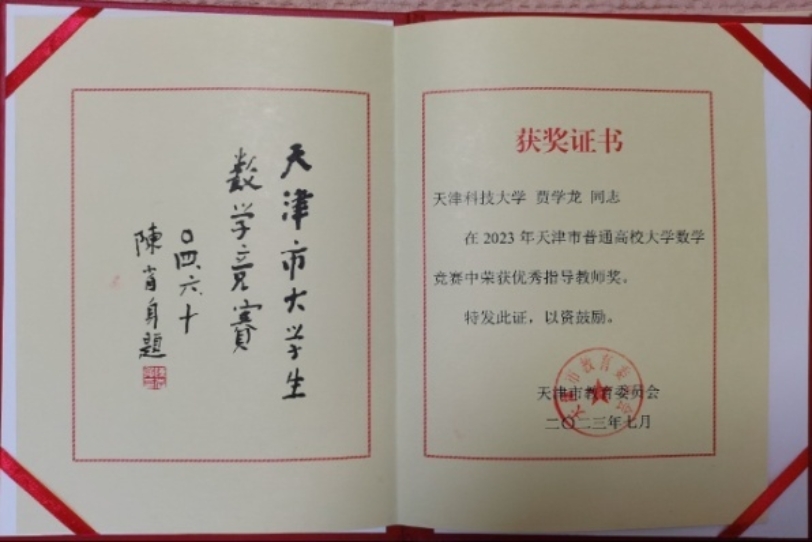 天津市大学生
数学竞賽
〇四六十
陳省身題
获奖证书
天津科技大学 贾学龙 同志
在 2023 年天津市普通高校大学数学
竞赛中荣获优秀指导教师奖。
特发此证，以资鼓励。
天津市教育委员会
天津市教育委员会
二〇二三年七月